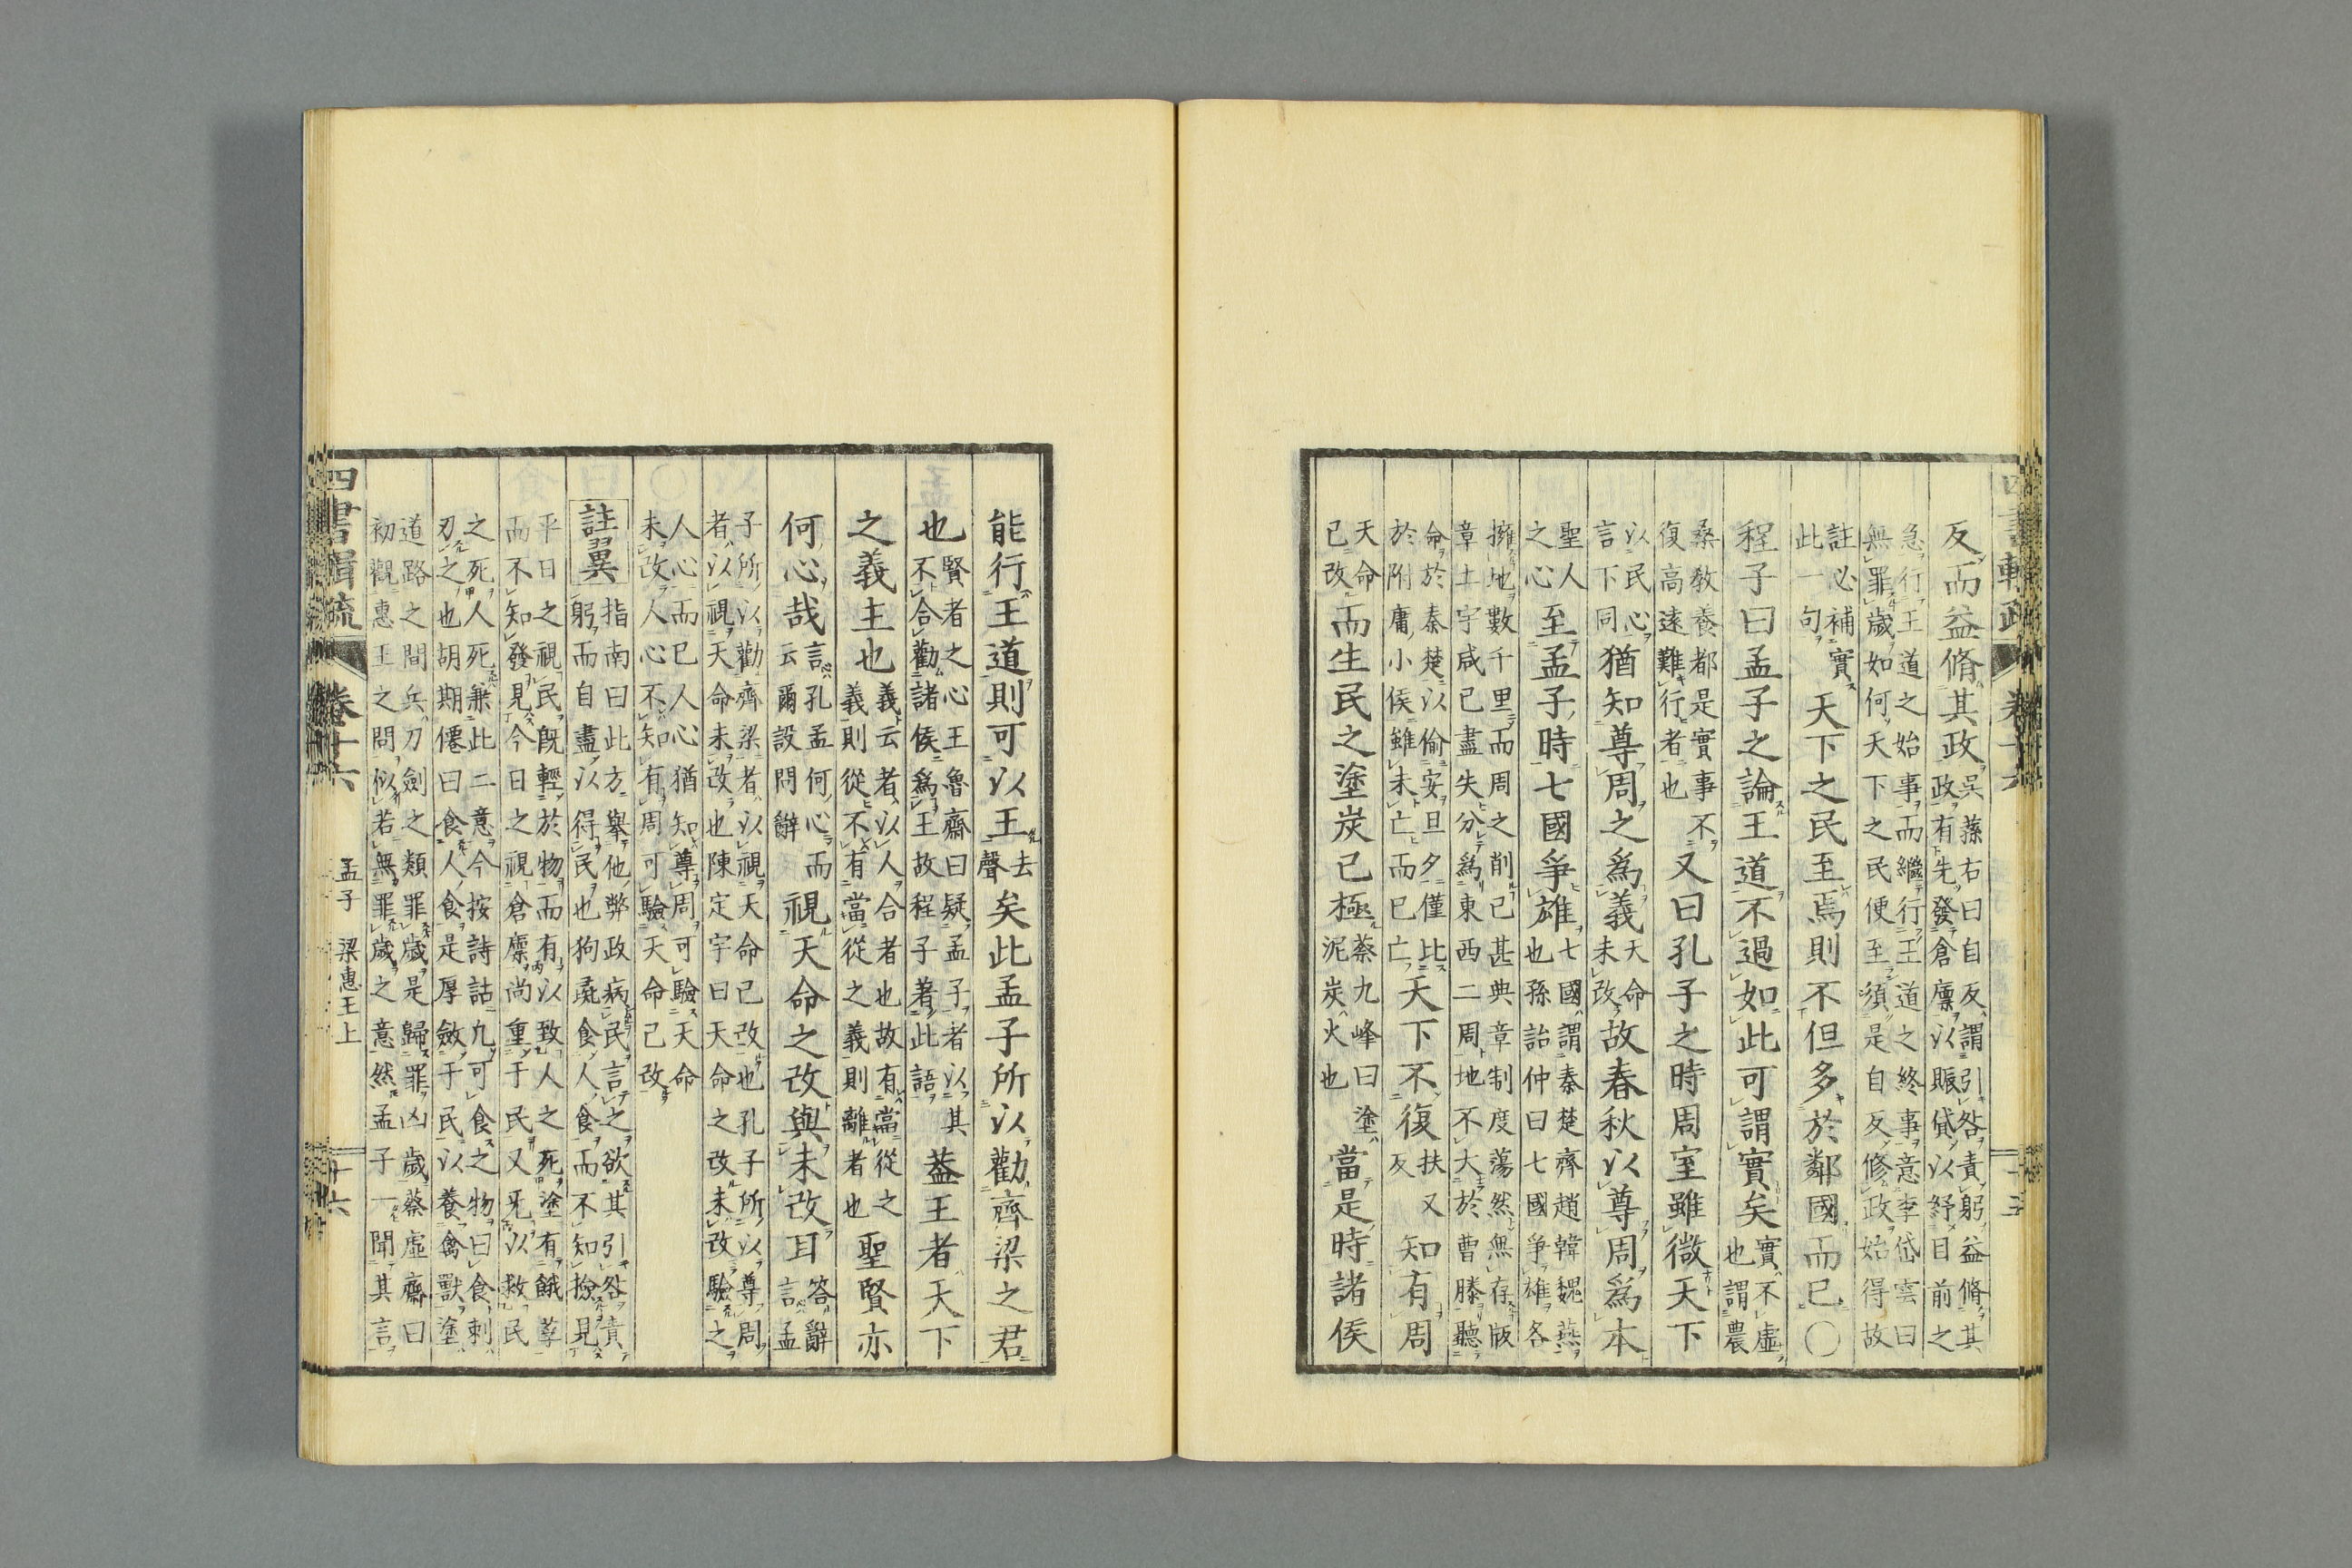 反而益脩其政吳蓀右曰自反謂引咎責躬益脩其
政有先發倉廩以賑貸以紓目前之
急行王道之始事而繼行王道之終事意李岱雲曰
無罪歲如何天下之民便至須是自反修政始得故
註必補實
此一句天下之民至焉則不但多於鄰國而已〇
程子曰孟子之論王道不過如此可謂實矣實不虛
也謂農
桑敎養都是實事不
復高遠難行者也又曰孔子之時周室雖微天下
以民心
言下同猶知尊周之爲義天命
未改故春秋以尊周爲本
聖人
之心至孟子時七國爭雄七國謂秦楚齊趙韓魏燕
也孫詒仲曰七國爭雄各
擁地數千里而周之削已甚典章制度蕩然無存版
章土宇咸已盡失分爲東西二周地不大於曹滕聽
命於秦楚以偷安旦夕僅比
於附庸小侯雖未亡而已亡天下不復扶又
反知有周
天命
已改而生民之塗炭已極蔡九峰曰塗
泥炭火也當是時諸侯
能行王道則可以王去
聲矣此孟子所以勸齊梁之君
也賢者之心王魯齋曰疑孟子者以其
不合勸諸侯爲王故程子著此語葢王者天下
之義主也義云者以人合者也故有當從之
義則從不有當從之義則離者也聖賢亦
何心哉言孔孟何心而
云爾設問辭視天命之改與未改耳答辭
言孟
子所以勸齊梁者以視天命已改也孔子所以尊周
者以視天命未改也陳定宇曰天命之改未改驗之
人心而已人心猶知尊周可驗天命
未改人心不知有周可驗天命已改
註翼指南曰此方舉他弊政病民言之欲其引咎責
躬而自盡以得民也狗彘食人食而不知撿見
平日之視民旣輕於物而有以致人之死塗有餓莩
而不知發見今日之視倉廩尚重于民又旡以救民
之死人死兼此二意今按詩詁凢可食之物曰食刺
刃之也胡期僊曰食人食是厚斂于民以養禽獸塗
道路之間兵刀劍之類罪歲是歸罪凶歲蔡虛齋曰
初觀惠王之問似若無罪歲之意然孟子一聞其言
四書輯疏 卷十六 孟子 梁惠王上 十六